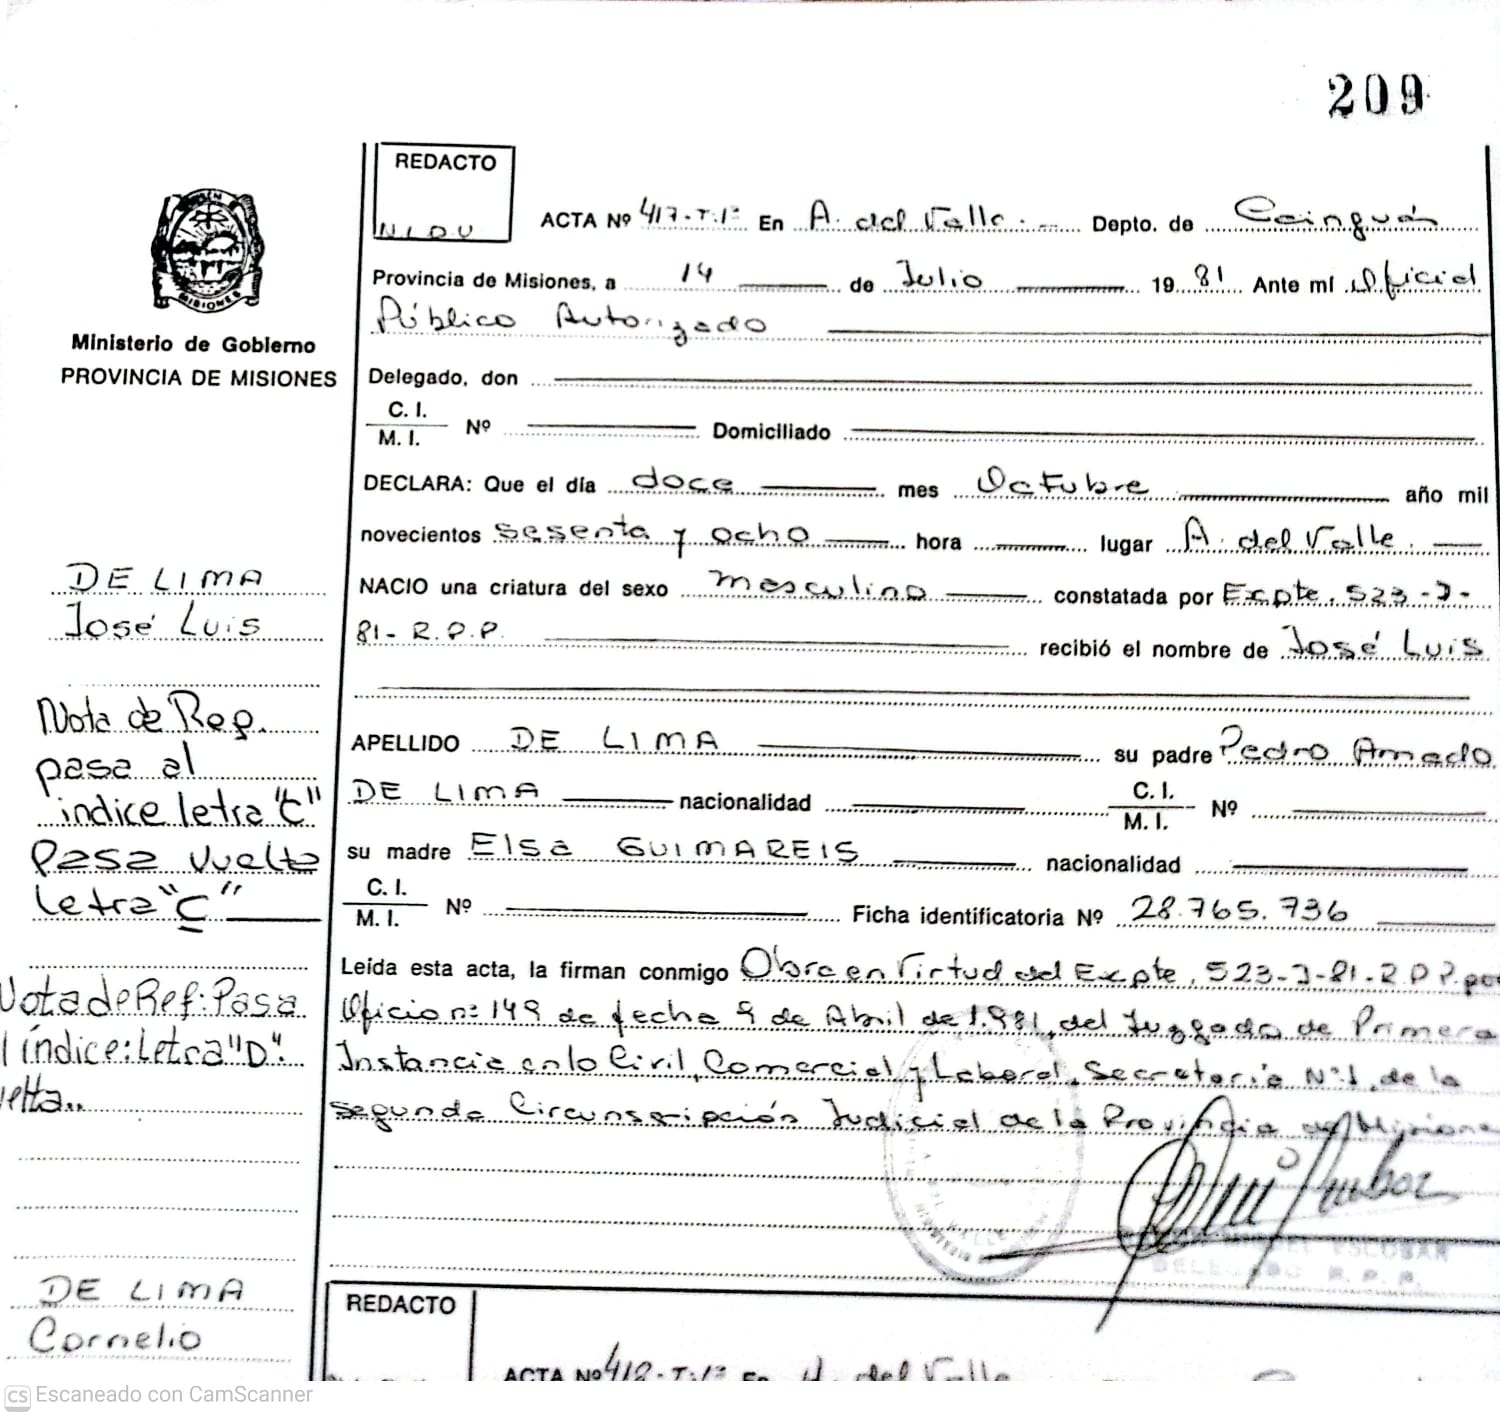 209
REDACTO
ACTA Nº 417-T.1º En A. del Valle. Depto. de Cainguás
Provincia de Misiones, a 14 de Julio 1981 Ante mí Oficial
Público Autorizado
MISIONES
Ministerio de Gobierno
PROVINCIA DE MISIONES
Delegado, don
C. I.
M. I.
Nº Domiciliado
DECLARA: Que el día doce mes Octubre año mil
novecientos sesenta y ocho hora lugar A. del Valle.
NACIO una criatura del sexo masculino constatada por Expte. 523-J-
81-R.P.P. recibió el nombre de José Luis
APELLIDO DE LIMA su padre Pedro Amado
DE LIMA nacionalidad C. I. M. I. Nº
su madre Elsa GUIMAREIS nacionalidad
C. I.
M. I.
Nº Ficha identificatoria Nº 28.765.736
Leída esta acta, la firman conmigo Obra en Virtud del Expte. 523-J-81-R.P.P. por
Oficio nº 149 de fecha 9 de Abril de 1.981, del Juzgado de Primera
Instancia en lo Civil, Comercial y Laboral, Secretaría Nº 1, de la
segunda Circunscripción Judicial de la Provincia de Misiones
DE LIMA
José Luis
Nota de Rep.
pasa al
indice letra "C"
Pasa vuelta
letra "C"
Nota de Ref: Pasa
índice: Letra "D".
ESCOBAR
DELEGADO R. P. P.
DE LIMA
Cornelio
REDACTO
ACTA Nº 418-T.1º En A. del Valle
CS Escaneado con CamScanner